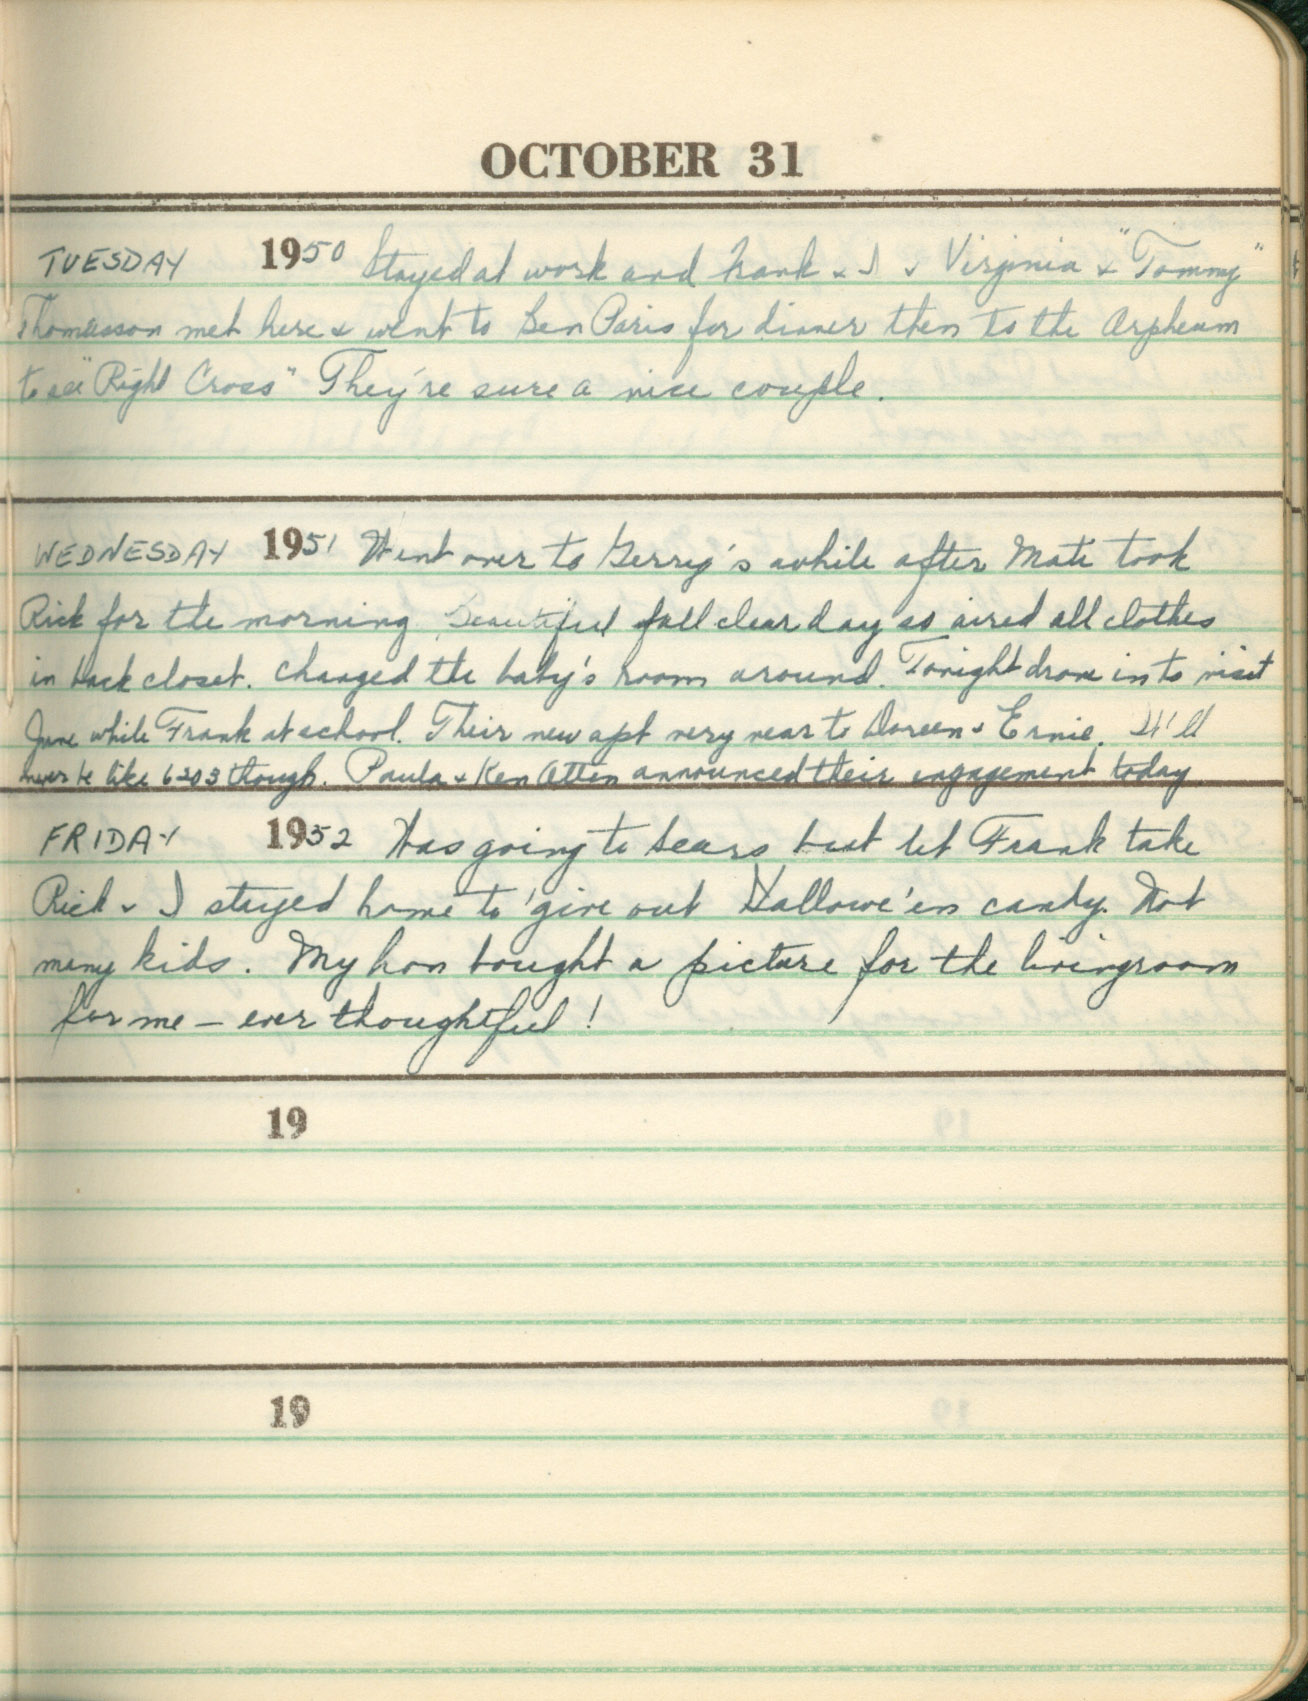 OCTOBER 31
TUESDAY 1950 Stayed at work and Frank & I & Virginia & "Tommy"
Thomasson met here & went to Ben Paris for dinner then to the Orpheum
to see "Right Cross" They're sure a nice couple.
WEDNESDAY 1951 Went over to Gerry's awhile after Mate took
Rick for the morning. Beautiful fall clear day so aired all clothes
in back closet. Changed the baby's room around. Tonight drove in to visit
June while Frank at school. Their new apt very near to Doreen & Ernie. It'll
never be like 6203 though. Paula & Ken announced their engagement today
FRIDAY 1952 Was going to Sears but let Frank take
Rick & I stayed home to give out Hallowe'en candy. Not
many kids. My hon bought a picture for the livingroom
for me — ever thoughtful!
19
19